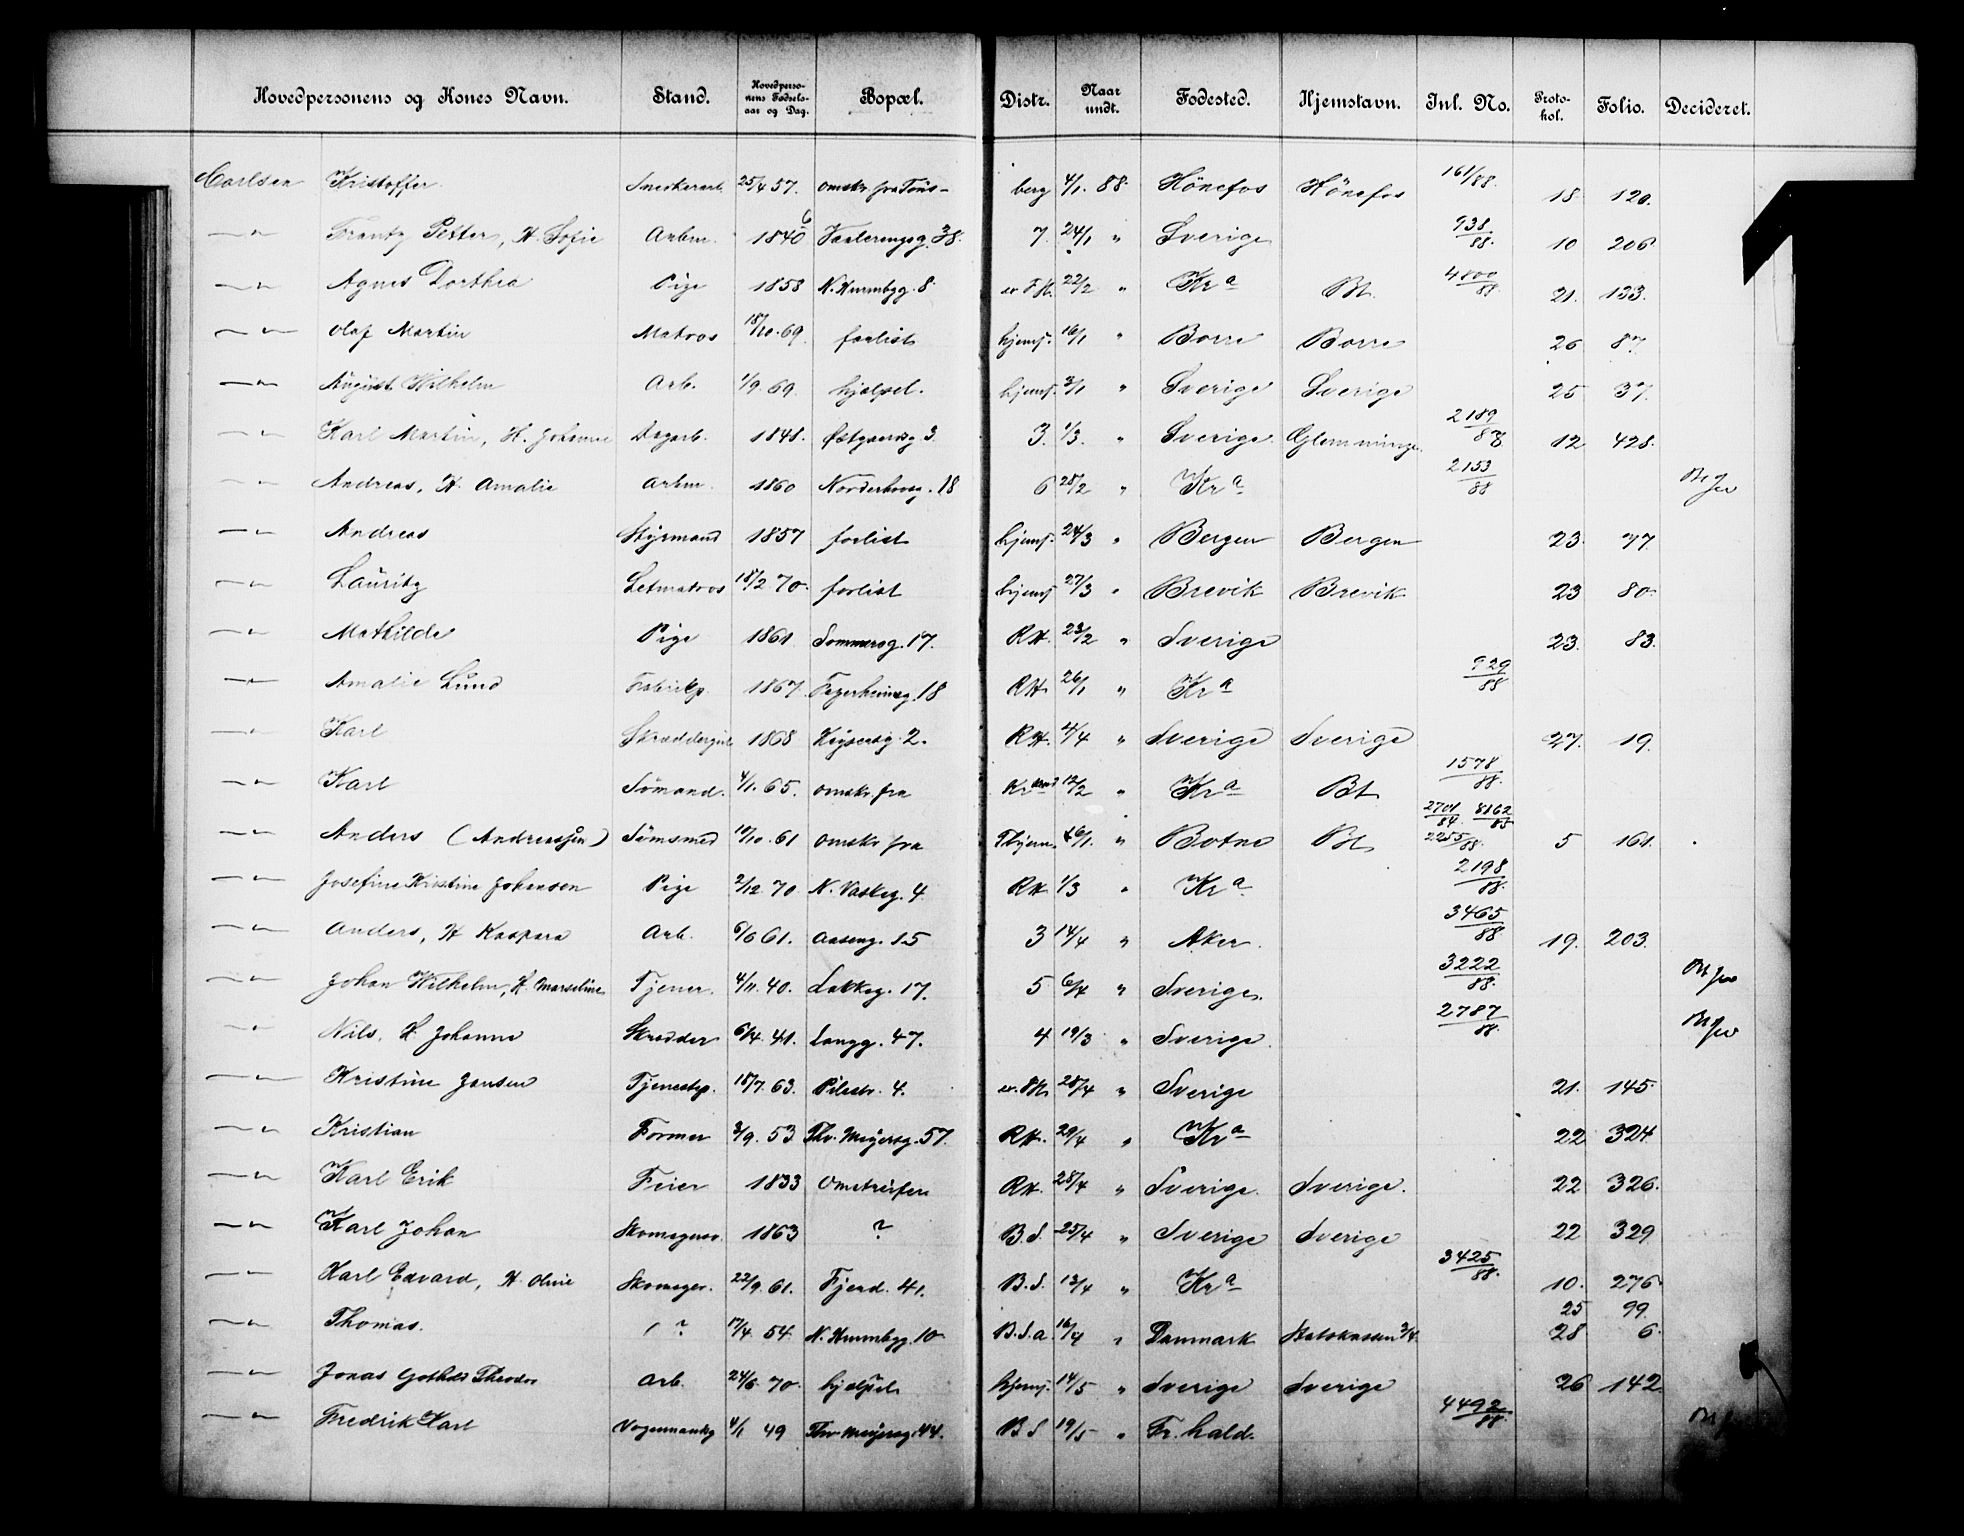 Hovedpersonens og Kones Navn. Stand. Hovedperso-nens Fødsels-aar og Dag. Bopæl. Distr. Naar undt. Fødested. Hjemstavn. Jnl. No. Proto-kol. Folio. Decideret.
Carlsen Kristoffer Snedkerarb. 25/4 57. omskr. fra Töns- berg 4/1. 88. Hönefos Hönefos 161/88. 18 120.
—"— Frantz Petter, H. Sofie Arbm. 1840 Vaalerengsg. 38. 7. 24/1 " Sverige 938/88. 10 206
—"— Agnes Dorthea Pige 1858 N. Hummbyg. 8. 22/2 " Kra Bt. 4800/88 21. 133.
—"— Olaf Martin Matros 18/10. 69. forlist hjemf. 16/1 " Borre Borre 26 87.
—"— August Wilhelm Arb. 1/9. 69. hjælpel. hjemf. 3/1 " Sverige Sverige 25 37.
—"— Karl Martin, H. Johanne Dagarb. 1848. 3. 3. 1/3. " Sverige Glemminge 2189/88 12 428.
—"— Andreas, H. Amalie Arbm. 1860 Norderhovg. 18 6 28/2 " Kra 2153/88
—"— Andreas Styrmand 1857 forlist hjemf. 24/3 " Bergen Bergen 23. 77.
—"— Lauritz Letmatros 18/2 70. forlist hjemf 27/3 " Brevik Brevik 23 80.
—"— Mathilde Pige 1861 Sommerog. 17. RH. 23/2 " Sverige 23. 83.
—"— Amalie Lund Fabrikp. 1867. Fagerheimsg. 18 RH. 26/1 " Kra 929/88
—"— Karl Skræddergut 1868 Keysersg. 2. RH. 4/4 " Sverige Sverige 27. 19.
—"— Karl Sömand. 4/11. 65. omskr. fra Krsand 12/2 " Kra Bt 1578/88.
—"— Anders (Andreassen) Sömsmed 19/10. 61 omskr fra Thjem. 16/1. " Botne Bt. 2701/84. 8162/85 2255/88. 5 161.
—"— Josefine Kristine Johansen Pige 2/12. 70. N. Vaskeg. 4. RH. 1/3 " Kra 2198/88.
—"— Anders, H Kaspara Arb. 6/6 61. Aaseng. 15 3 14/4 " Aker. 3465/88. 19. 203.
—"— Johan Wilhelm, H. Marseline Tjener. 4/11. 40. Lakkeg. 17. 5 6/4 " Sverige. 3222/88.
—"— Nils, H. Johanne Skredder 6/4. 41. Langg. 47. 4 19/3 " Sverige. 2787/88.
—"— Kristine Jensen Tjenestep. 15/7. 63. Pilestr. 4. 28/4 " Sverige 21. 145.
—"— Kristian Former 3/9. 53 Thv. Meyersg. 57. RH. 29/4 " Kra 22 324
—"— Karl Erik Feier 1833 Omstreifer RH. 28/4 " Sverige. Sverige. 22 326.
—"— Karl Johan Skomagersv. 1863 ? B.S. 25/4 " Sverige Sverige 22 329
—"— Karl Edvard, H. Oline Skomager. 22/9. 61. Fjerd. 41. B.S. 13/4 " Kra 3425/88. 10. 276.
—"— Thomas. ? 17/4. 54. N. Hummbyg. 10. B.S.a 16/4 " Danmark Statskassen 3/4. 25 99. 28 6.
—"— Jonas Gothold Theodor Arb. 24/6. 70. hjælpel. hjemf. 14/5 " Sverige Sverige 26 142.
—"— Fredrik Karl Vognmandg 4/1 49 Thv Meyersg. 44. B.S 19/5 " Fr. hald. 4492/88.